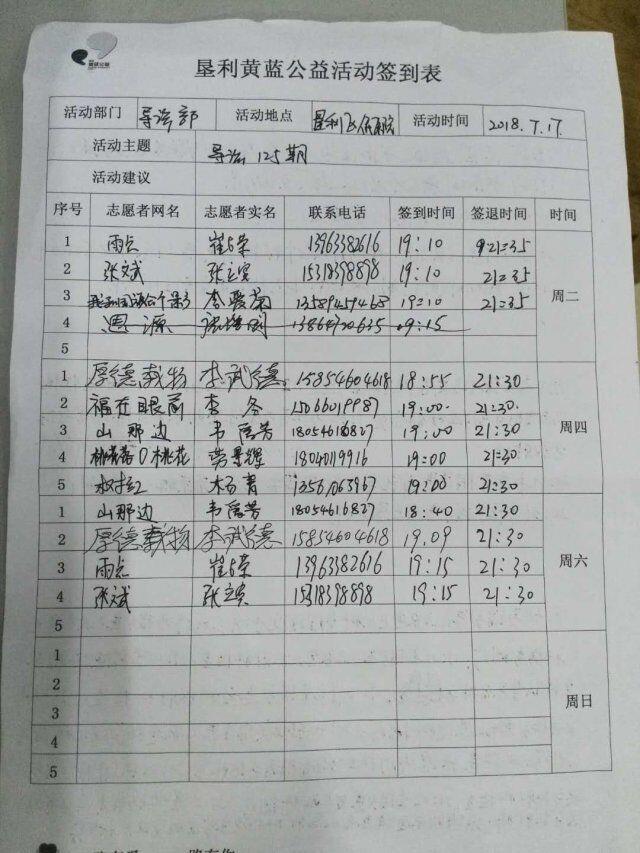 垦利黄蓝公益活动签到表
活动部门 导法部 活动地点 垦利 活动时间 2018.7.17
活动主题 导法125期
活动建议
序号 志愿者网名 志愿者实名 联系电话 签到时间 签退时间 时间
1 雨点 13963382616 19:10 21:35
2 张斌 15318398898 19:10 21:35
3 13589459468 19:10 21:35 周二
4 周源 13864720635 19:15
5
1 厚德载物 李武德 15854604618 18:55 21:30
2 福在眼前 李冬 15066019987 19:00 21:30
3 山那边 韦秀芳 18054616827 19:00 21:30 周四
4 18040119916 19:00 21:30
5 杨青 19:00 21:30
1 山那边 韦秀芳 18054616827 18:40 21:30
2 厚德载物 李武德 15854604618 19.09 21:30
3 雨点 13963382616 19:15 21:30 周六
4 张斌 15318398898 19:15 21:30
5
1
2
3 周日
4
5